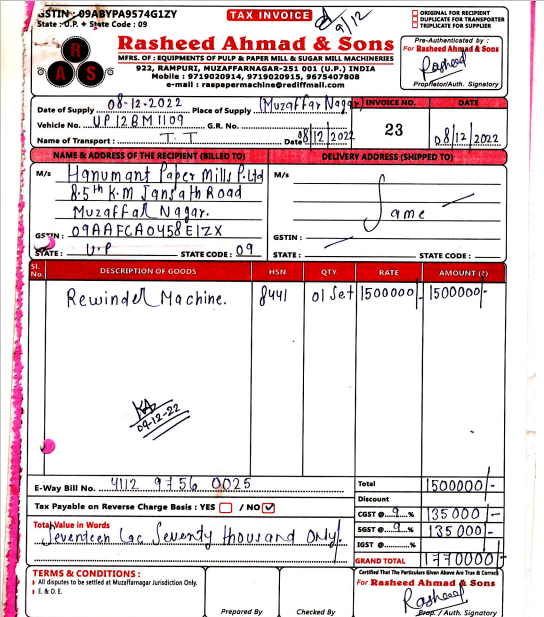 GSTIN : 09ABYPA9574G1ZY
State : U.P. + State Code : 09
TAX INVOICE
9/12
ORIGINAL FOR RECIPIENT
DUPLICATE FOR TRANSPORTER
TRIPLICATE FOR SUPPLIER
RAS
Rasheed Ahmad & Sons
MFRS. OF : EQUIPMENTS OF PULP & PAPER MILL & SUGAR MILL MACHINERIES
922, RAMPURI, MUZAFFARNAGAR-251 001 (U.P.) INDIA
Mobile : 9719020914, 9719020915, 9675407808
e-mail : raspapermachine@rediffmail.com
Pre-Authenticated by :
For Rasheed Ahmad & Sons
Rasheed
Proprietor/Auth. Signatory
Date of Supply 08-12-2022 Place of Supply (Muzaffar Nagar)
Vehicle No. UP12BM1109 G.R. No.
Name of Transport : T.T Date 08/12/2022
INVOICE NO. DATE
23 08/12/2022
NAME & ADDRESS OF THE RECIPIENT (BILLED TO)
M/s Hanumant Paper Mills P.Ltd
8.5th K.M Jansath Road
Muzaffar Nagar.
GSTIN : 09AAFCA0458E1ZX
STATE : U.P STATE CODE : 09
DELIVERY ADDRESS (SHIPPED TO)
M/s
Same
GSTIN :
STATE : STATE CODE :
Sl. No. DESCRIPTION OF GOODS HSN QTY. RATE AMOUNT (₹)
Rewinder Machine. 8441 01 Set 1500000/- 1500000/-
09-12-22
E-Way Bill No. 4112 9756 0025
Tax Payable on Reverse Charge Basis : YES / NO ✓
Total Value in Words
Seventeen Lac Seventy thousand Only/.
Total 1500000/-
Discount
CGST @ 9 % 135000/-
SGST @ 9 % 135000/-
IGST @ %
GRAND TOTAL 1770000/-
TERMS & CONDITIONS :
All disputes to be settled at Muzaffarnagar Jurisdiction Only.
E. & O. E.
Prepared By
Checked By
Certified That the Particulars Given Above Are True & Correct
For Rasheed Ahmad & Sons
Rasheed
Prop. / Auth. Signatory